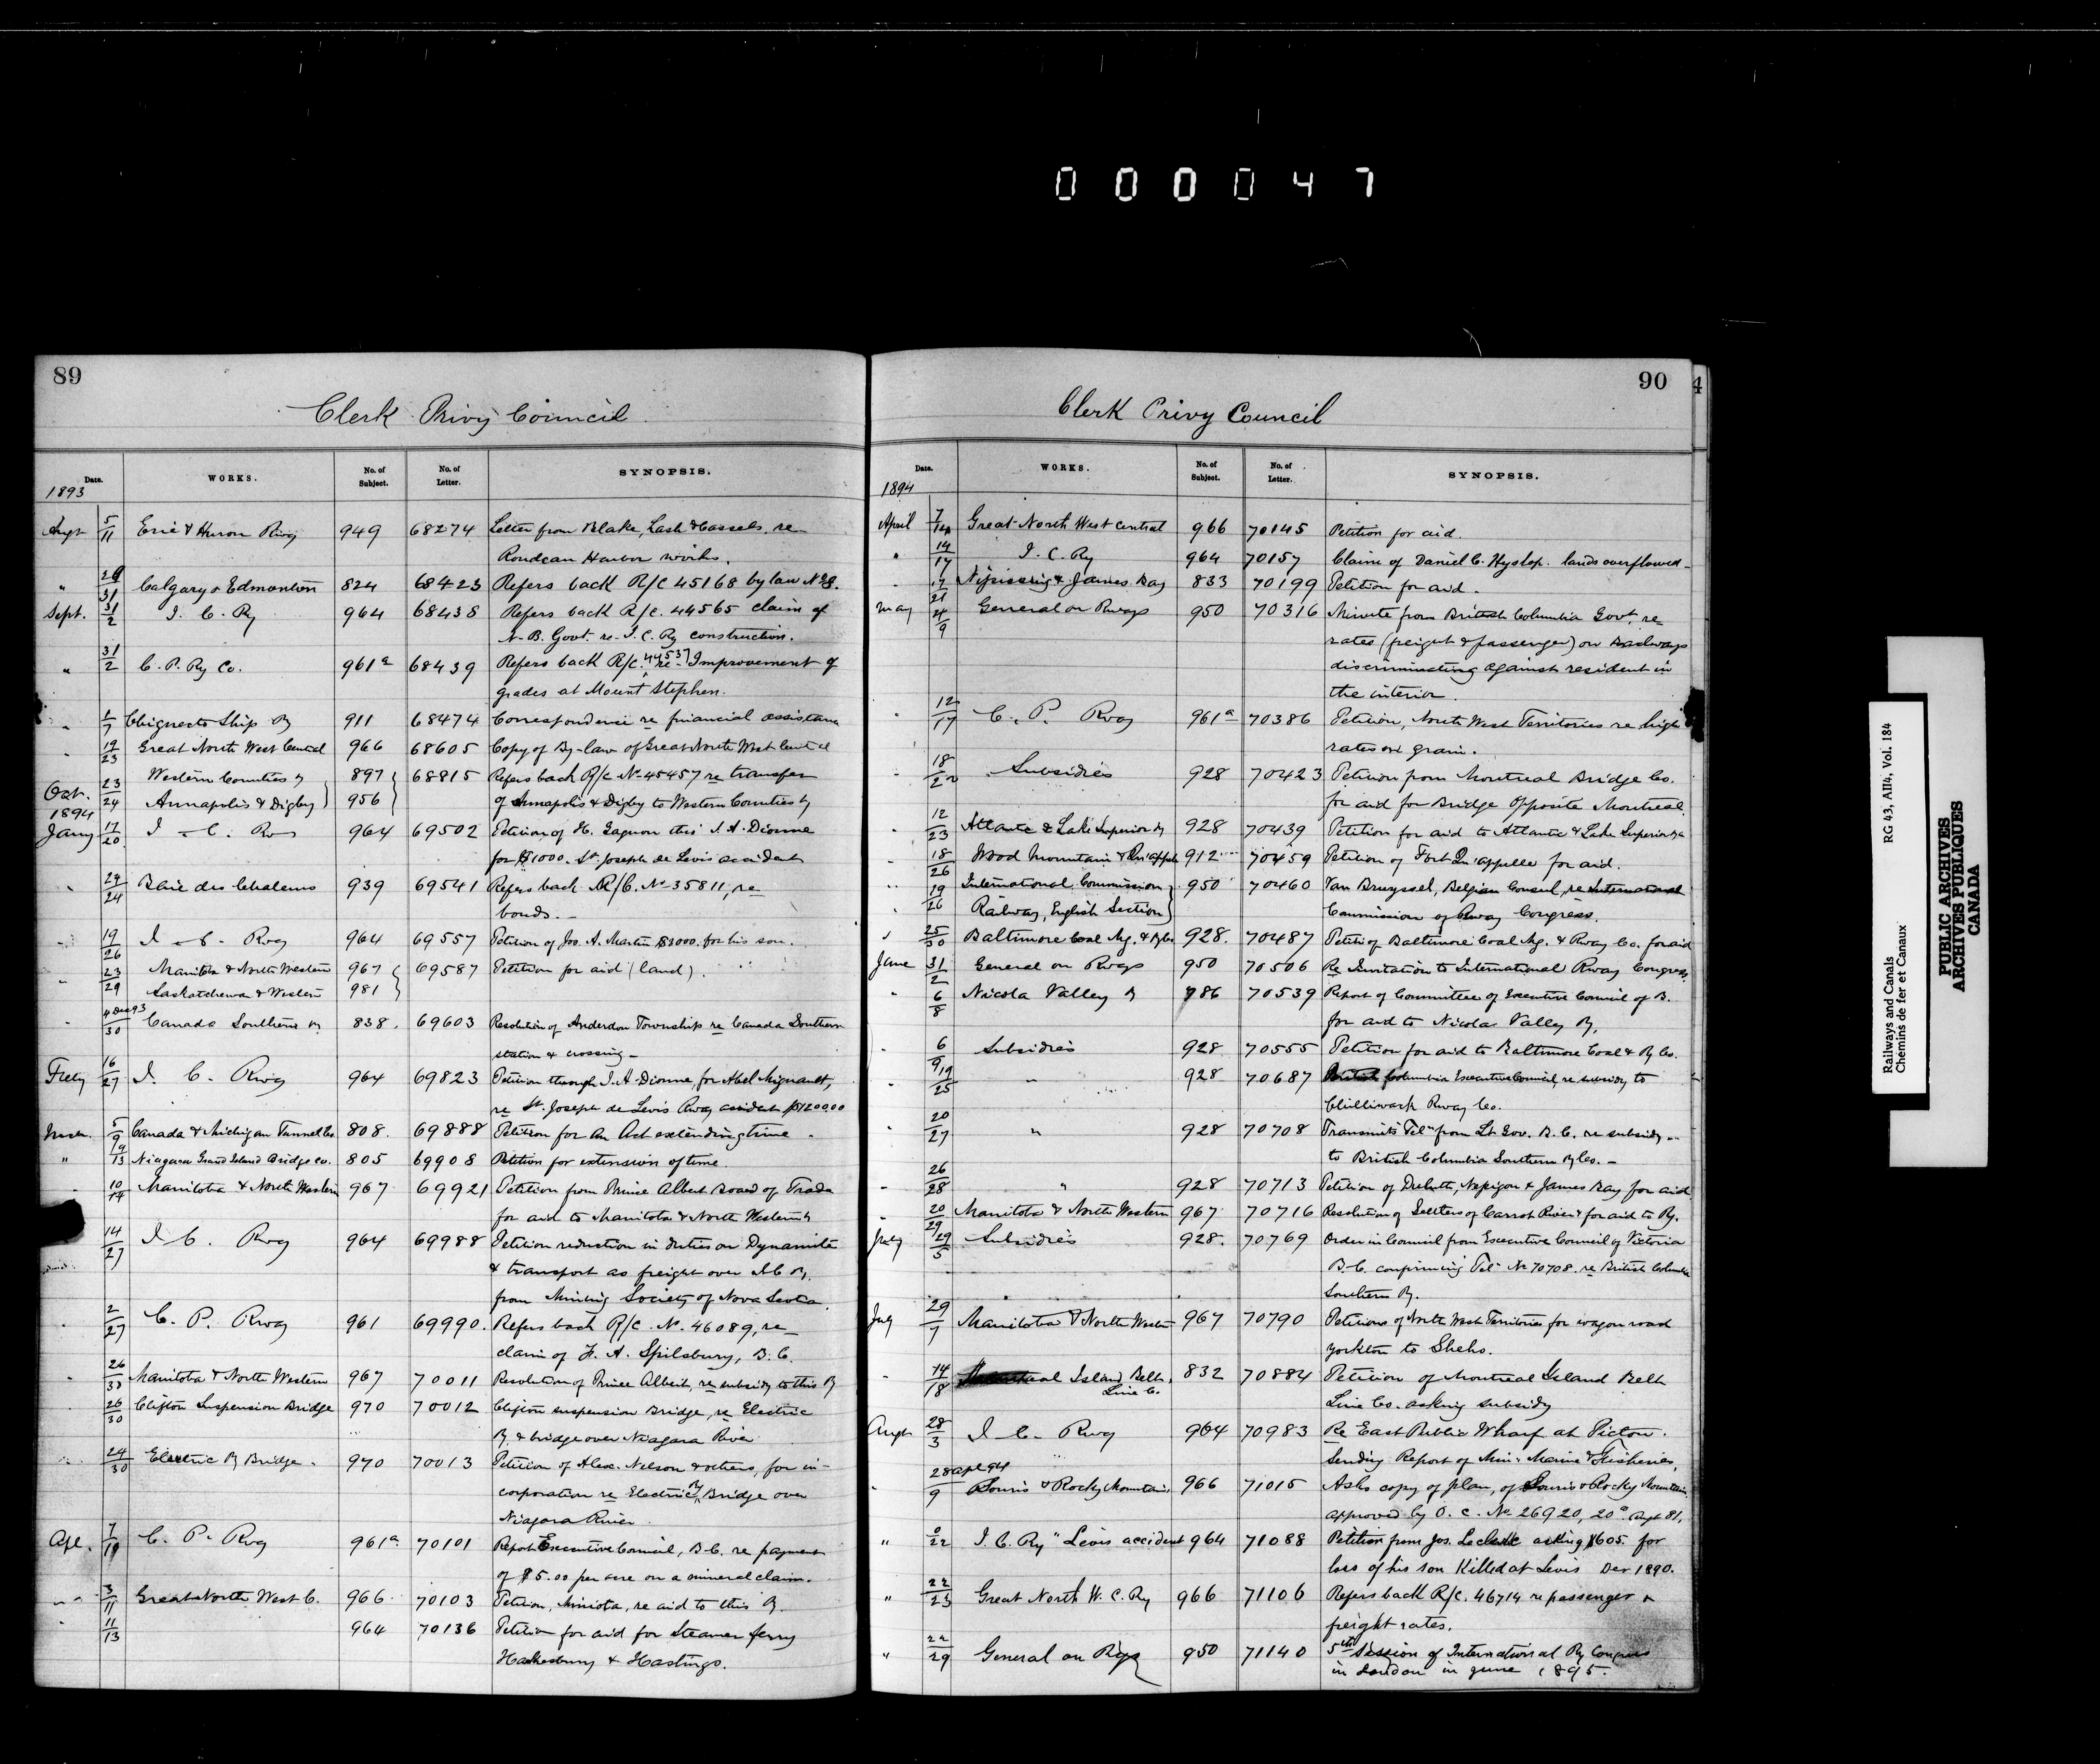 000047
89
Clerk Privy Council
Date. WORKS. No. of Subject. No. of Letter. SYNOPSIS.
1893
Augt 5/11 Erie & Huron Rwy 949 68274 Letter from Blake, Lash & Cassels. re
Rondeau Harbor works.
" 29/31 Calgary & Edmonton 824 68423 Refers back R/C 45168 by law No 8.
Sept. 31/2 I. C. Ry 964 68438 Refers back R/C. 44565 claim of
N. B. Govt. re I. C. Ry construction.
" 31/2 C. P. Ry Co. 961a 68439 Refers back R/C. 44537 re Improvement of
grades at Mount Stephen.
" 2/7 Chignecto Ship Ry 911 68474 Correspondence re financial assistance
" 19/23 Great North West Central 966 68605 Copy of By-law of Great North West Central
Oct. 23/24 Western Counties Ry 897 68815 Refers back R/C No 45457 re transfer
Annapolis & Digby 956 of Annapolis & Digby to Western Counties Ry
1894
Jany 17/20 I. C. Rwy 964 69502 Petition of H. Gagnon thro' J. A. Dionne
for $1000. St. Joseph de Levis accident
" 24/24 Baie des Chaleurs 939 69541 Refers back R/C. No 35811, re
bonds. -
" 19/26 I. C. Rwy 964 69557 Petition of Jos. A. Martin $3000. for his son.
" 23/29 Manitoba & North Western 967 69587 Petition for aid (land).
Saskatchewan & Western 981
" 4 Dec 93/30 Canada Southern Ry 838. 69603 Resolution of Anderdon Township re Canada Southern
station & crossing -
Feby 16/27 I. C. Rwy 964 69823 Petition through J. A. Dionne, for Abel Mignault,
re St. Joseph de Levis Rwy accident $1200.00
Mar. 5/9 Canada & Michigan Tunnel Co. 808. 69888 Petition for An Act extending time.
" 9/13 Niagara Grand Island Bridge Co. 805 69908 Petition for extension of time.
" 10/14 Manitoba & North Western 967 69921 Petition from Prince Albert Board of Trade
for aid to Manitoba & North Western Ry
14/27 I. C. Rwy 964 69988 Petition reduction in duties on Dynamite
& transport as freight over I.C Ry.
from Mining Society of Nova Scotia.
" 2/27 C. P. Rwy 961 69990. Refers back R/C. No. 46089, re
claim of F. A. Spilsbury, B. C.
" 26/30 Manitoba & North Western 967 70011 Resolution of Prince Albert, re subsidy to this Ry
" 26/30 Clifton Suspension Bridge 970 70012 Clifton suspension Bridge, re Electric
Ry. & bridge over Niagara River
" 24/30 Electric Ry Bridge. 970 70013 Petition of Alex. Nelson & others, for in-
corporation re Electric Ry Bridge over
Niagara River
Apl. 7/10 C. P. Rwy 961a 70101 Report Executive Council, B.C. re payment
of $5.00 per acre on a mineral claim.
" 3/11 Great North West C. 966 70103 Petition, Miniota, re aid to this Ry.
" 11/13 964 70136 Petition for aid for Steamer ferry
Hawkesbury & Hastings.
90
Clerk Privy Council
Date. WORKS. No. of Subject. No. of Letter. SYNOPSIS.
1894
April 7/14 Great North West Central 966 70145 Petition for aid.
" 14/17 I. C. Ry 964 70157 Claim of Daniel C. Hyslop. lands overflowed -
" 17/21 Nipissing & James Bay 833 70199 Petition for aid.
May 4/9 General on Rways 950 70316 Minute from British Columbia Govt. re
rates (freight & passenger) on Railways
discriminating against resident in
the interior.
" 12/17 C. P. Rway 961a 70386 Petition, North West Territories re high
rates on grain.
" 18/22 Subsidies 928 70423 Petition from Montreal Bridge Co.
for aid for Bridge Opposite Montreal.
" 12/23 Atlantic & Lake Superior Ry 928 70439 Petition for aid to Atlantic & Lake Superior Ry
" 18/26 Wood Mountain & Qu'appelle 912 70459 Petition of Fort Qu'appelle for aid.
" 19/26 International Commission 950 70460 Van Bruyssel, Belgian Consul, re International
Railway, English Section Commission of Rway Congress.
" 25/30 Baltimore Coal Mg. & Ry Co 928. 70487 Petit. of Baltimore Coal Mg. & Rway Co. for aid
June 31/2 General on Rways 950 70506 Re Invitation to International Rway Congress
" 6/8 Nicola Valley Ry 786 70539 Report of Committee of Executive Council of B.
for aid to Nicola Valley Ry.
" 6/9 Subsidies 928 70555 Petition for aid to Baltimore Coal & Ry Co.
" 19/25 " 928 70687 British Columbia Executive Council, re subsidy to
Chilliwack Rway Co.
" 20/27 " 928 70708 Transmits Tel. from Lt Gov. B. C. re subsidy
to British Columbia Southern Ry Co. -
" 26/28 " 928 70713 Petition of Duluth, Nepigon & James Bay for aid
" 20/29 Manitoba & North Western 967 70716 Resolution of Settlers of Carrot River for aid to Ry.
July 29/5 Subsidies 928. 70769 Order in Council from Executive Council of Victoria
B.C. confirming Tel. No 70708. re British Columbia
Southern Ry.
July 29/7 Manitoba & North Western 967 70790 Petitions of North West Territories for wagon road
Yorkton to Sheho.
" 14/18 Montreal Island Belt 832 70884 Petition of Montreal Island Belt
Line Co. Line Co. asking subsidy
Augt 28/3 I. C. Rwy 964 70983 Re East Public Wharf at Pictou.
Sending Report of Min. Marine & Fisheries,
" 28 apl 94/9 Souris & Rocky Mountain 966 71015 Asks copy of plan, of Souris & Rocky Mountain
approved by O. C. No 26920, 20" Augt 81,
" /22 I. C. Ry "Levis accident 964 71088 Petition from Jos. Leclerc asking $605. for
loss of his son Killed at Levis Dec 1890.
" 22/23 Great North W. C. Ry 966 71106 Refers back R/C. 46714 re passenger &
freight rates.
" 22/29 General on Rys 950 71140 5th Session of International Ry Congress
in London in June 1895.
4
Railways and Canals RG 43, AII4, Vol. 184
Chemins de fer et Canaux
PUBLIC ARCHIVES
ARCHIVES PUBLIQUES
CANADA